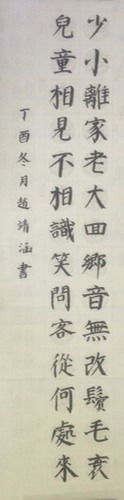 少小離家老大回鄉音無改鬢毛衰
兒童相見不相識笑問客從何處來
丁酉冬月趙靖涵書